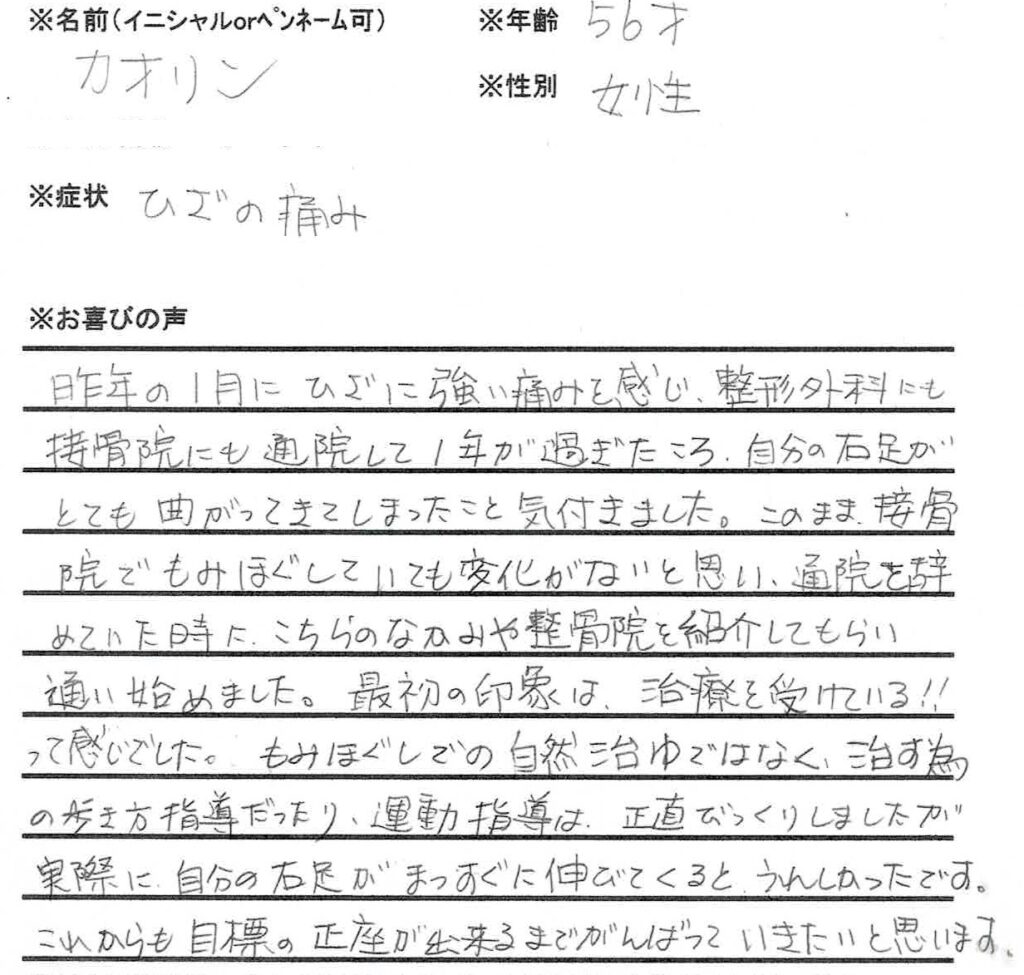 ※名前(イニシャルorペンネーム可)
カオリン
※年齢 56才
※性別 女性
※症状 ひざの痛み
※お喜びの声
昨年の1月にひざに強い痛みを感じ、整形外科にも
接骨院にも通院して1年が過ぎたころ、自分の右足が
とても曲がってきてしまったこと気付きました。このまま、接骨
院でもみほぐしていても変化がないと思い、通院を辞
めていた時に、こちらのなかみや整骨院を紹介してもらい
通い始めました。最初の印象は、治療を受けている!!
って感じでした。もみほぐしでの自然治ゆではなく、治す為
の歩き方指導だったり、運動指導は、正直びっくりしましたが
実際に、自分の右足がまっすぐに伸びてくると、うれしかったです。
これからも目標の正座が出来るまでがんばっていきたいと思います。